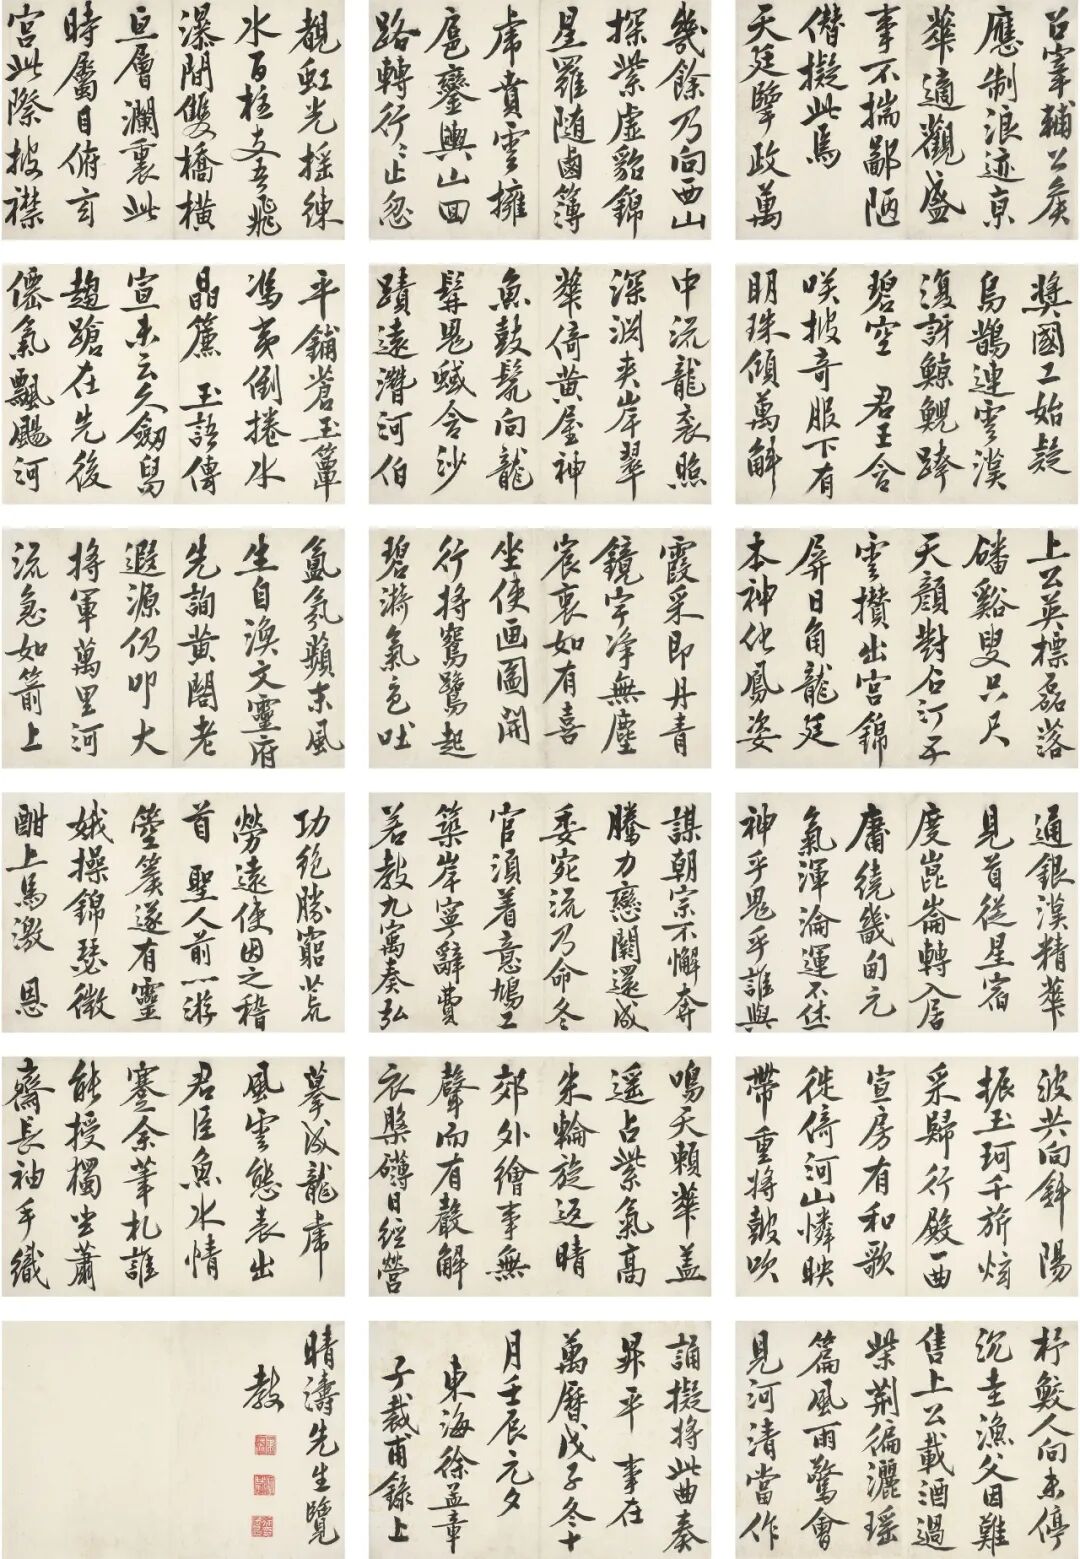 召宰輔公侯
應制浪迹京
華適觀盛
事不揣鄙陋
僭擬此焉
天廷肇政萬
幾餘乃向西山
探紫虛貂錦
星羅随鹵簿
虎賁雲擁
扈鑾輿山回
路轉行〻止忽
覩虹光摇練
水百柱支吾飛
瀑間雙橋横
亘層瀾裏此
時屬目俯玄
宫此際披襟
奬國工始疑
烏鵲連雲漢
復訝鯨鯢跨
碧空 君王含
咲披奇服下有
明珠傾萬斛
中流龍衮照
深淵夹岸翠
華倚黄屋神
魚鼓鬣向龍
髯鬼蜮含沙
蹟遠濳河伯
平鋪蒼玉簟
馮夷倒捲水
晶簾 玉語傳
宣未云久劔舄
趨蹌在先後
僊氣飄颺河
上公英標磊落
磻谿叟只尺
天顔對石汀子
雲攢出宫錦
屏日角龍廷
本神化鳳姿
霞采即丹青
鏡宇净無塵
宸衷如有喜
坐使画圖開
行將鴛鷺起
碧漪氣色吐
氤氲蘋末風
生自渙文靈府
先詢黄閣老
遐源仍叩大
將軍萬里河
流急如箭上
通銀漢精華
見首從星宿
度崑崙轉入居
庸繞畿甸元
氣渾淪運不休
神乎鬼乎誰與
謀朝宗不懈奔
騰力戀闕還成
委宛流乃命冬
官須着意鳩工
築岸寧辭費
若教九寓奏弘
功绝勝窮荒
勞遠使因之稽
首 聖人前一游
箜篌遂有靈
娥操錦瑟微
酣上馬激 恩
波共向斜陽
振玉珂千旂炫
采歸行殿一曲
宣房有和歌
徙倚河山憐映
帶重將皷吹
鳴天籟華盖
遥占紫氣高
朱輪旋返晴
郊外繪事無
聲而有聲解
衣槃礴日經營
摹成龍虎
風雲態表出
君臣魚水情
蹇余筆札誰
能授獨坐蕭
齋長袖手織
杼鮫人向未停
沉圭漁父因難
售上公載酒過
柴荆徧灑瑶
篇風雨驚會
見河清當作
誦擬將此曲奏
昇平 事在
萬曆戊子冬十
月壬辰元夕
東海徐益章
子裁甫錄上
晴濤先生覽
教